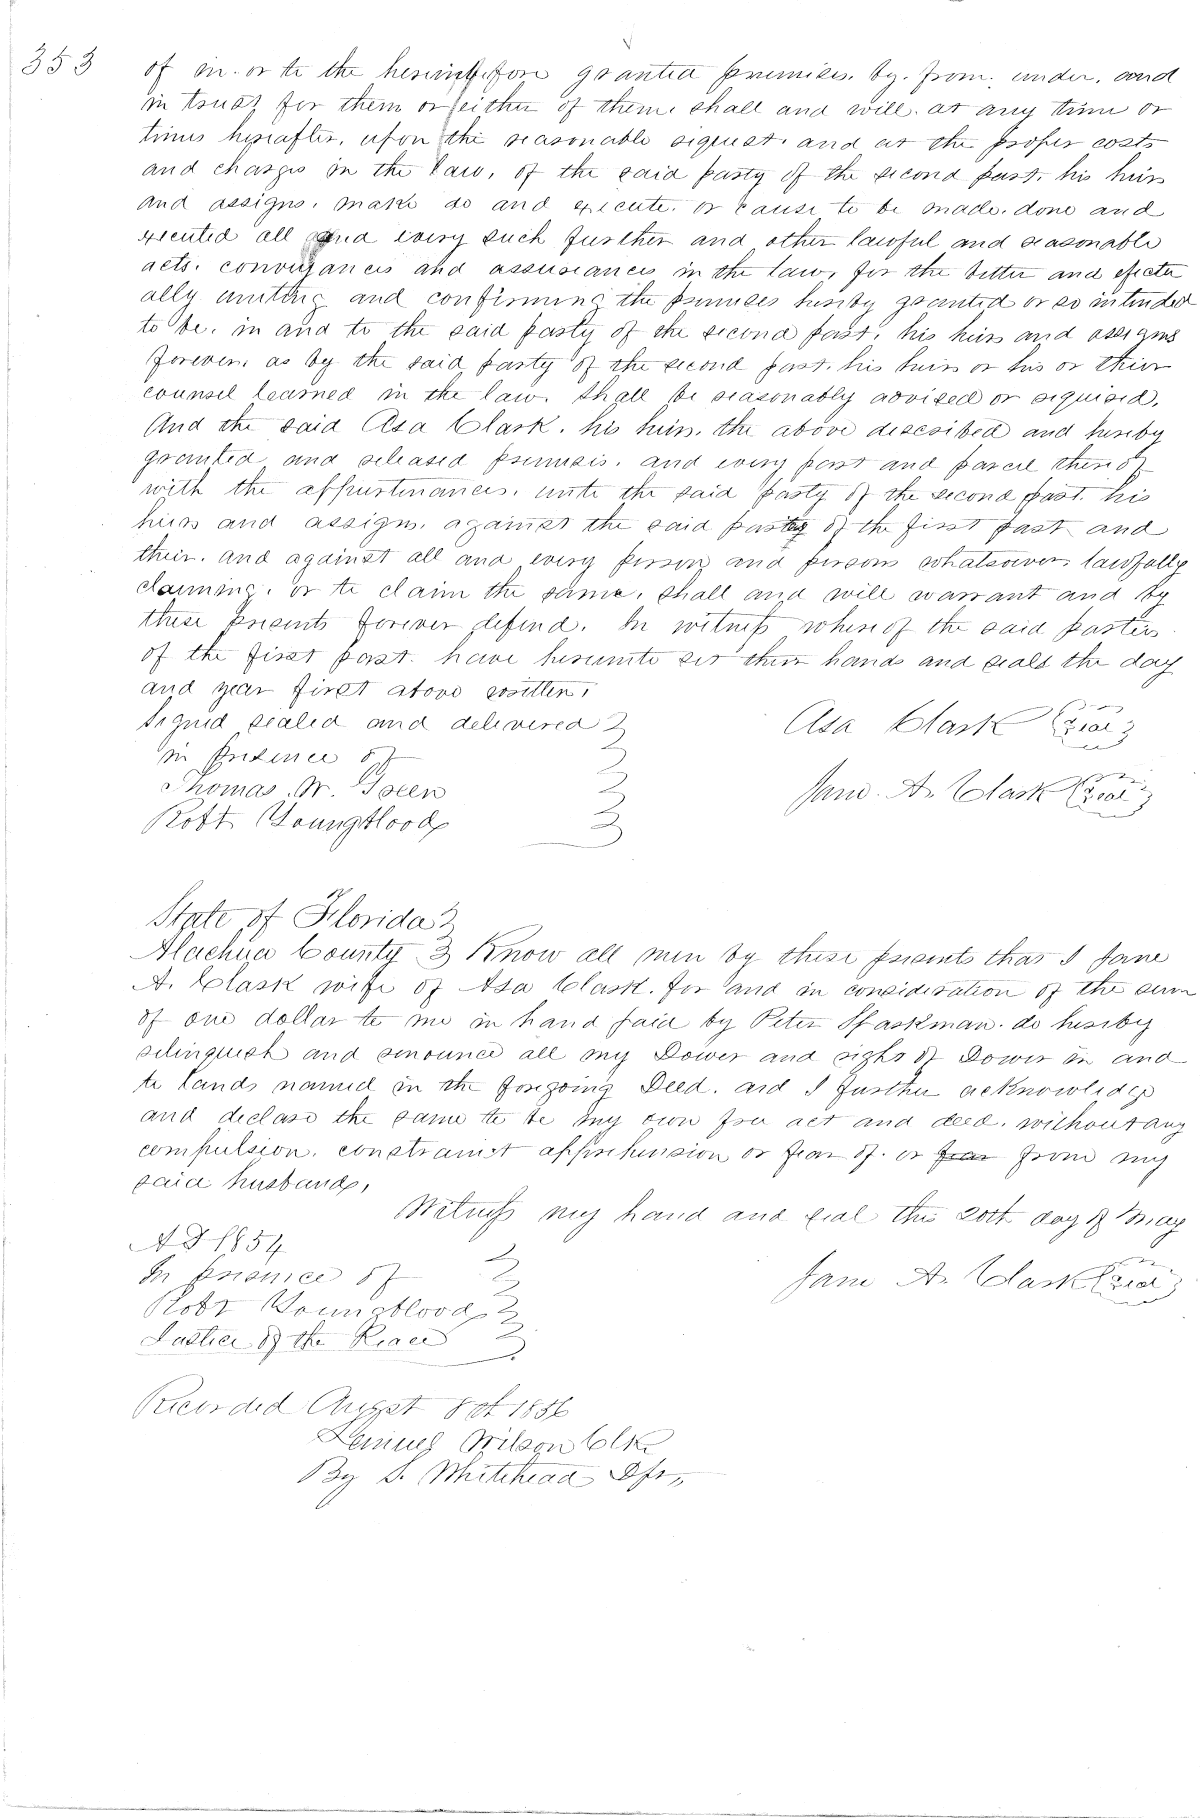 353
of in. or to the hereinbefore granted premises. by. from. under. and
in trust for them or either of them. shall and will. at any time or
times hereafter. upon the reasonable request. and at the proper costs
and charges in the law, of the said party of the second part. his heirs
and assigns. make do and execute. or cause to be made. done and
executed all and every such further and other lawful and reasonable
acts. conveyances and assurances in the law, for the better and efectu
ally and confirming the premises hereby granted or so intended
to be. in and to the said party of the second part. his heirs and assigns
forever. as by the said party of the second part. his heirs or his or thier
counsel learned in the law. shall be reasonably advised or required.
And the said Asa Clark. his heirs. the above described and hereby
granted and released premises. and every part and parcel thereof
with the appurtenances. unto the said party of the second part. his
heirs and assigns. against the said party of the first part and
their. and against all and every person and persons whatsoever. lawfully
claiming. or to claim the same. shall and will warrant and by
these presents forever defend. In witness whereof the said parties
of the first part. have hereunto set their hands and seals the day
and year first above written.
Signed sealed and delivered
in presence of
Thomas. W.
Robt Youngblood
Asa Clark Seal
Jane. A. Clark Seal
State of Florida
Alachua County Know all men by these presents that I Jane
A. Clark wife of Asa Clark. for and in consideration of the sum
of one dollar to me in hand paid by Peter Sparkman. do hereby
relinquish and renounce all my Dower and right of Dower in and
to lands named in the foregoing Deed. and I further acknowledge
and declare the same to be my own free act and deed. without any
compulsion. constraint apprehension or fear of. or fear from my
said husband.
Witness my hand and seal this 20th day of May
A D 1854
In presence of
Robt Youngblood
Justice of the Peace
Jane A. Clark Seal
Recorded Augst 8th 1856
Lemuel Wilson Clk
By S. Whitehead Dpt